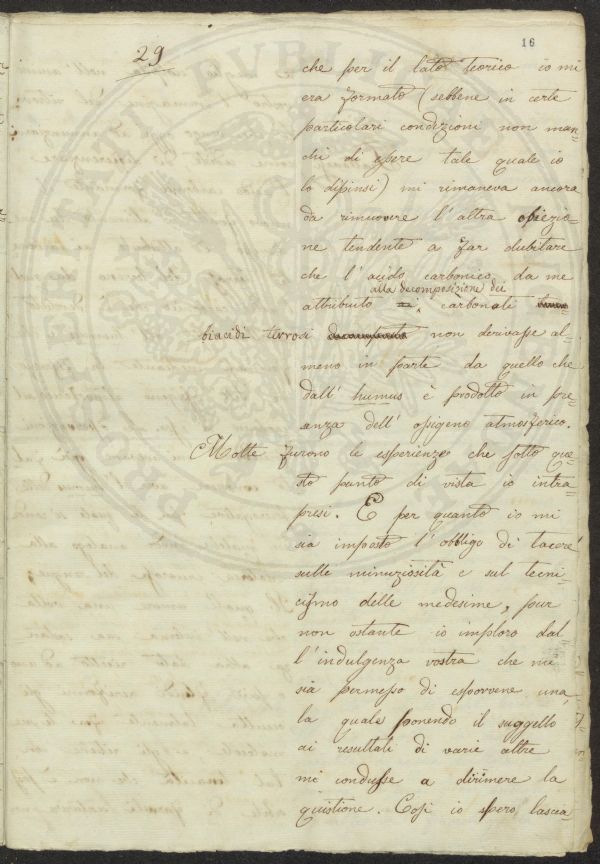 29
16
che per il lato teorico io mi
era formato (sebbene in certe
particolari condizioni non man=
chi di essere tale quale io
lo dipinsi) mi rimaneva ancora
da rimuovere l'altra obiezio=
ne tendente a far dubitare
che l'acido carbonico da me
alla decomposizione dei
attribuito ai carbonati
biacidi terrosi non derivasse al=
meno in parte da quello che
dall'humus è prodotto in pre=
senza dell'ossigeno atmosferico.
Molte furono le esperienze che sotto que=
sto punto di vista io intra=
presi. E per quanto io mi
sia imposto l'obbligo di tacere
sulle minuziosità e sul tecni=
cismo delle medesime, pur
non ostante io imploro dal
l'indulgenza vostra che mi
sia permesso di esporvene una,
la quale ponendo il suggello
ai resultati di varie altre
mi condusse a dirimere la
quistione. Così io spero, lascia=